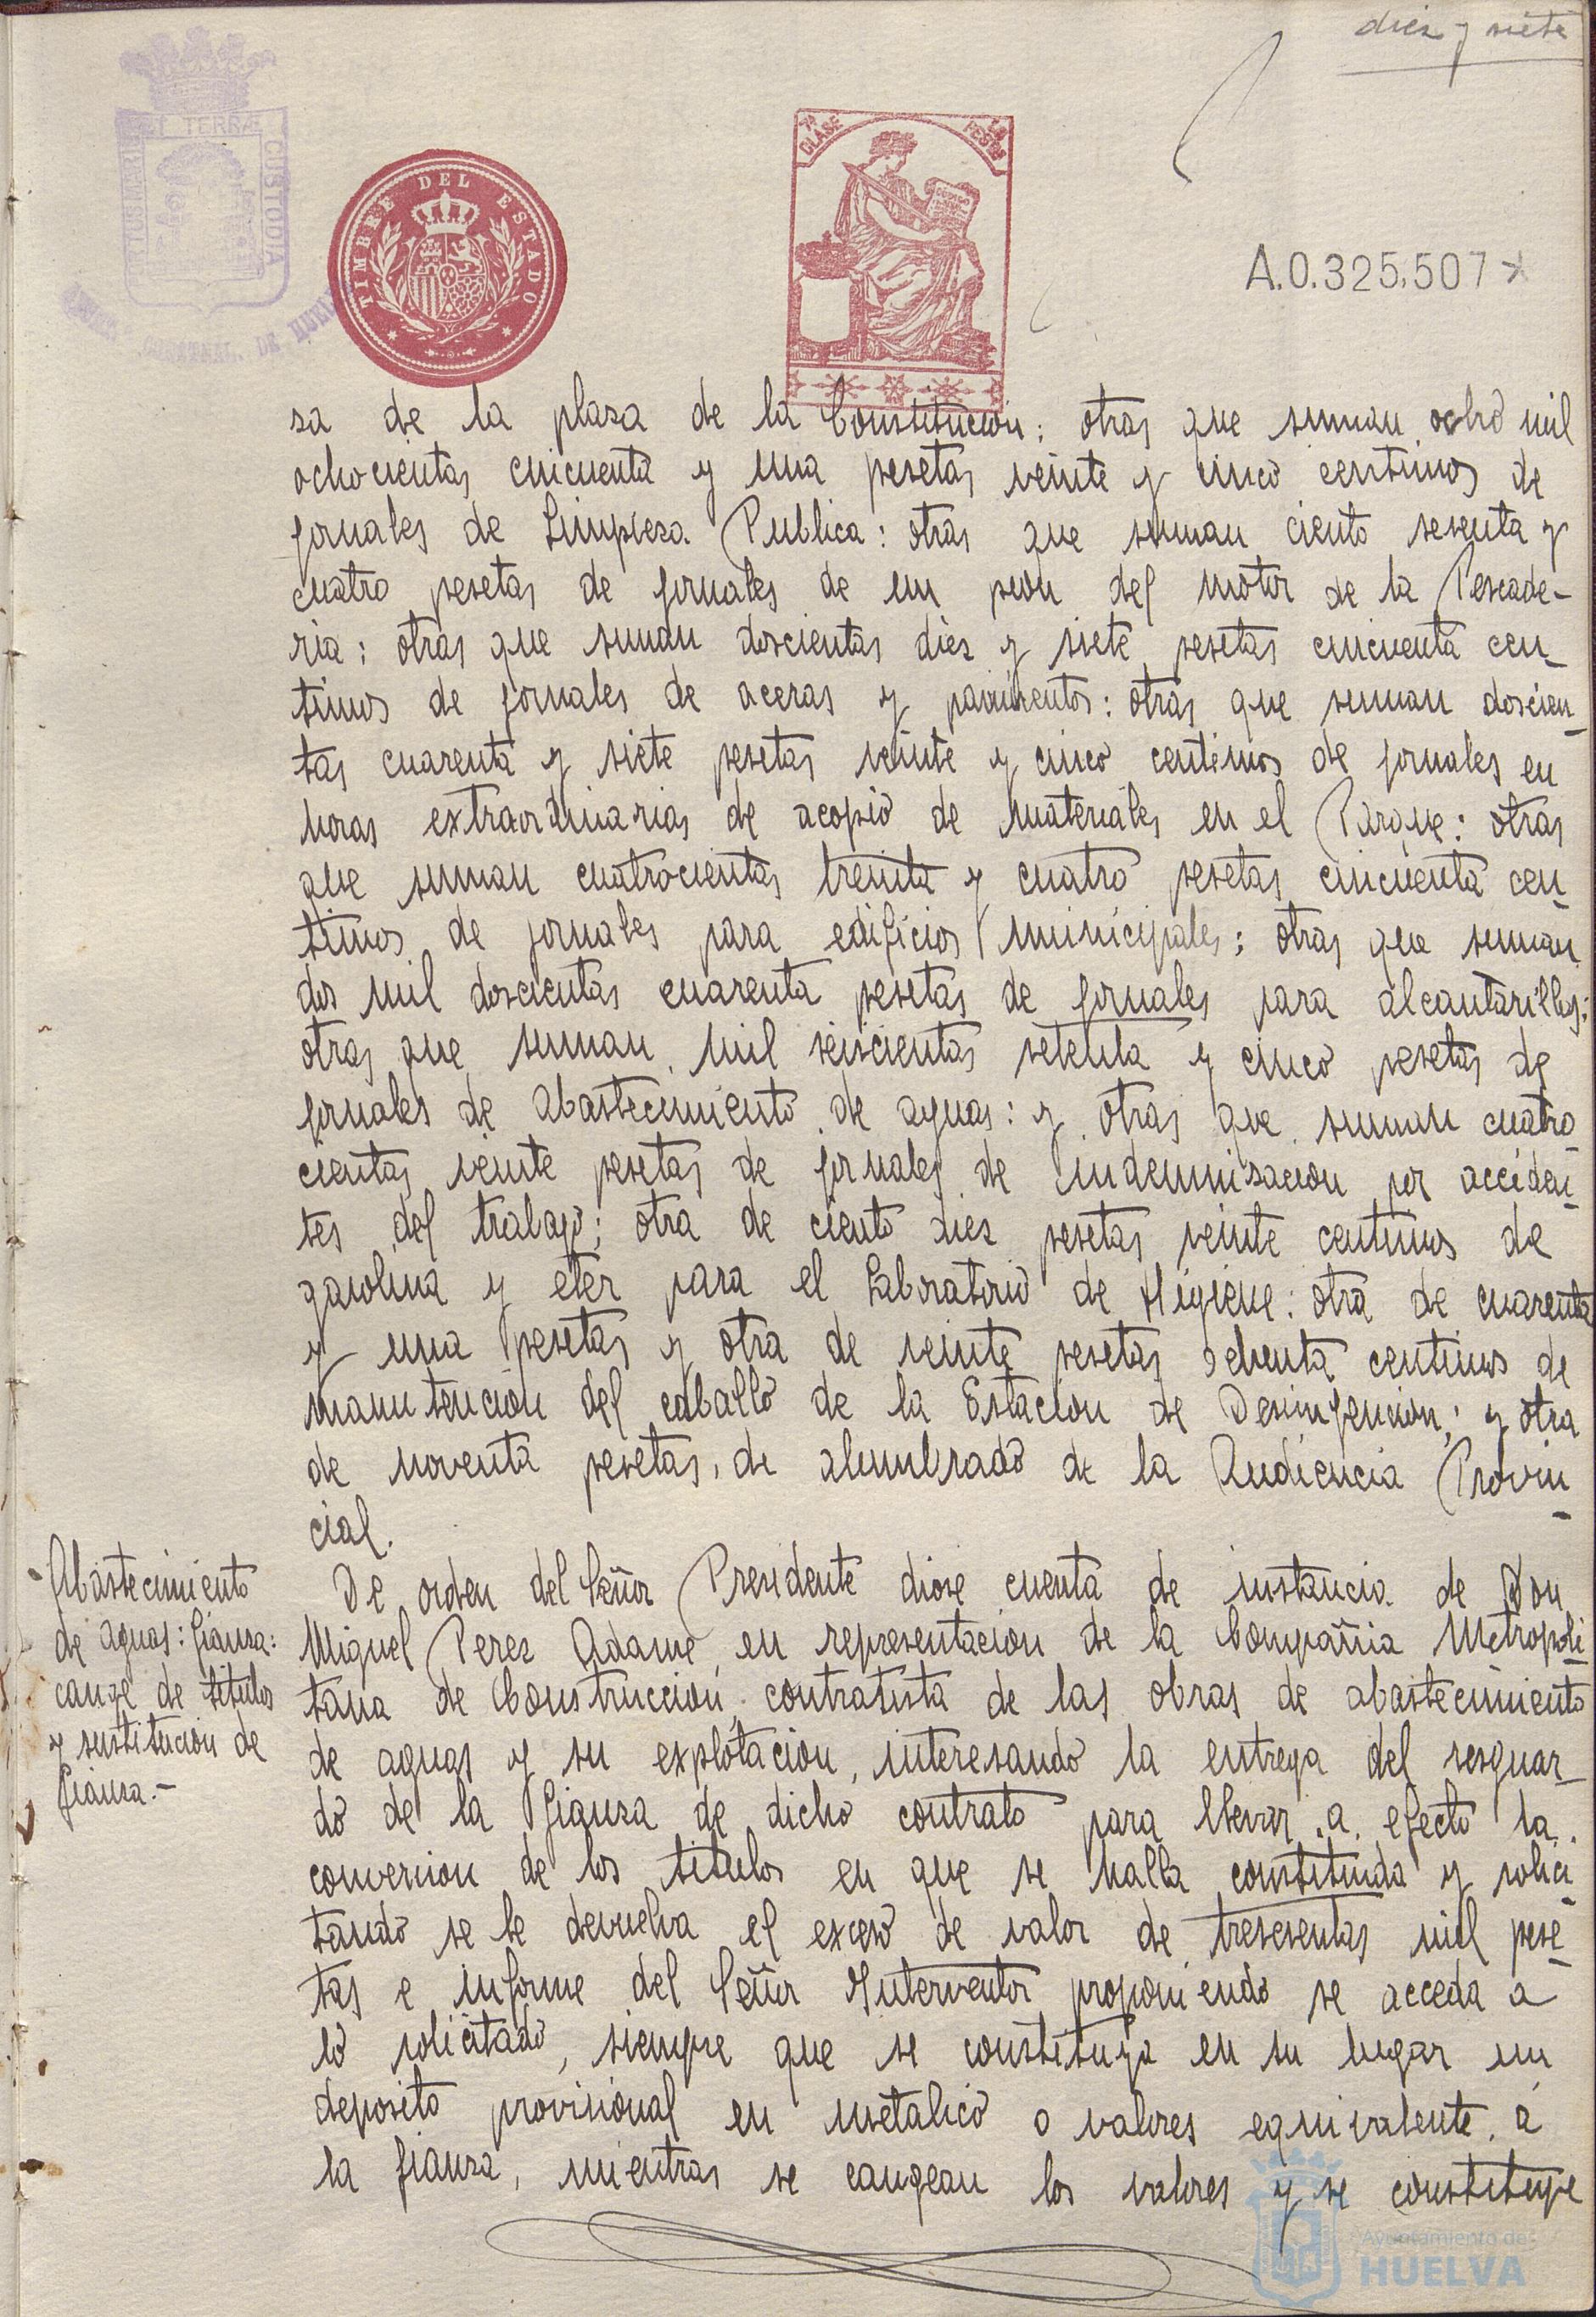 diez y siete
PORTUS MARIS ET TERRAE CUSTODIA
TIMBRE DEL ESTADO
7ª CLASE
PESETAS
A.0.325.507
sa de la plaza de la Constitución: otras que suman ocho mil
ochocientas cincuenta y una pesetas veinte y cinco centimos de
jornales de Limpieza Publica: otras que suman ciento sesenta y
cuatro pesetas de jornales de un peon del motor de la Pescade-
ria: otras que suman doscientas diez y siete pesetas cincuenta cen-
timos de jornales de aceras y pavimentos: otras que suman doscien-
tas cuarenta y siete pesetas veinte y cinco centimos de jornales en
horas extraordinarias de acopio de materiales en el Parque: otras
que suman cuatrocientas treinta y cuatro pesetas cincuenta cen-
timos de jornales para edificios municipales; otras que suman
dos mil doscientas cuarenta pesetas de jornales para alcantarillas:
otras que suman mil seiscientas setenta y cinco pesetas de
jornales de abastecimiento de aguas: y otras que suman cuatro
cientas veinte pesetas de jornales de indemnisacion por acciden-
tes del trabajo; otra de ciento diez pesetas veinte centimos de
gasolina y eter para el Laboratorio de Higiene: otra de cuarenta
y una pesetas y otra de veinte pesetas ochenta centimos de
manutencion del caballo de la Estacion de Desinfencion; y otra
de noventa pesetas, de alumbrado de la Audiencia Provin-
cial.
Abastecimiento
de aguas: fianza:
cange de titulos
y sustitucion de
fianza.-
De orden del Señor Presidente diose cuenta de instancia de Don
Miguel Perez Adame, en representacion de la Compañia Metropoli-
tana de Construccion, contratista de las obras de abastecimiento
de aguas y su explotacion, interesando la entrega del resguar-
do de la fianza de dicho contrato para llevar a efecto la
conversion de los titulos en que se halla constituida y solici-
tando se le devuelva el exceso de valor de tresesentas mil pese-
tas e informe del Señor Interventor proponiendo se acceda a
lo solicitado, siempre que se constituya en su lugar un
deposito provisional en metalico o valores equivalente a
la fianza, mientras se cangean los valores y se constituye
Ayuntamiento de
HUELVA